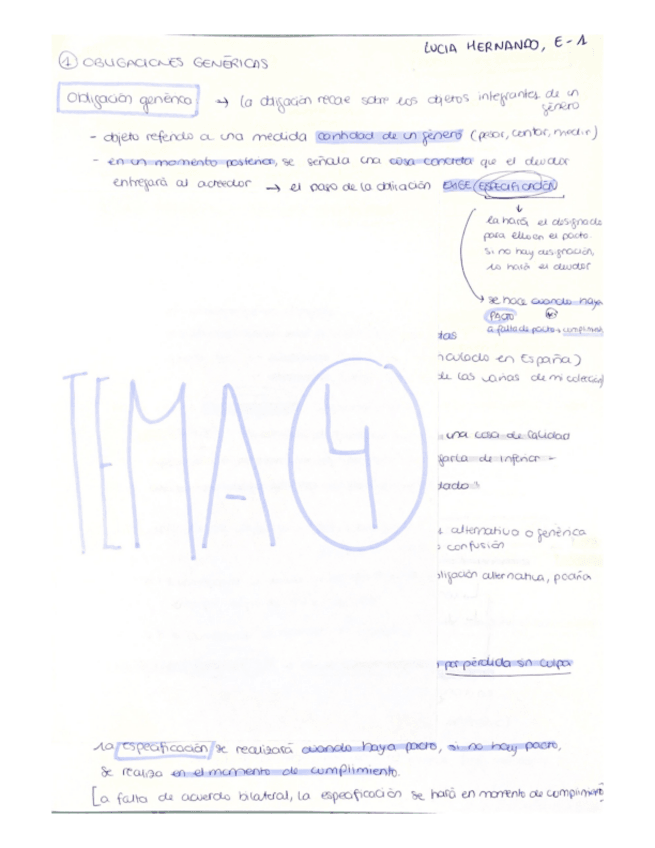 LUCIA HERNANDO, E-1
① OBLIGACIONES GENÉRICAS
Obligación genérica → la obligación recae sobre los objetos integrantes de un
género
- objeto referido a una medida cantidad de un género (pesar, contar, medir)
- en un momento posterior, se señala una cosa concreta que el deudor
entregará al acreedor → el paso de la obligación EXIGE ESPECIFICACIÓN
la hará el designado
para ello en el pacto.
si no hay designación,
lo hará el deudor
→ se hace cuando haya
PACTO
a falta de pacto: cumplimiento
tas
culado en España)
de las varias de mi colección
una cosa de calidad
garla de inferior -
tado
alternativa o genérica
confusión
ligación alternativa, podría
TEMA 4
por pérdida sin culpa
La especificación se realizará cuando haya pacto, si no hay pacto,
se realiza en el momento de cumplimiento.
[a falta de acuerdo bilateral, la especificación se hará en momento de cumplimiento]